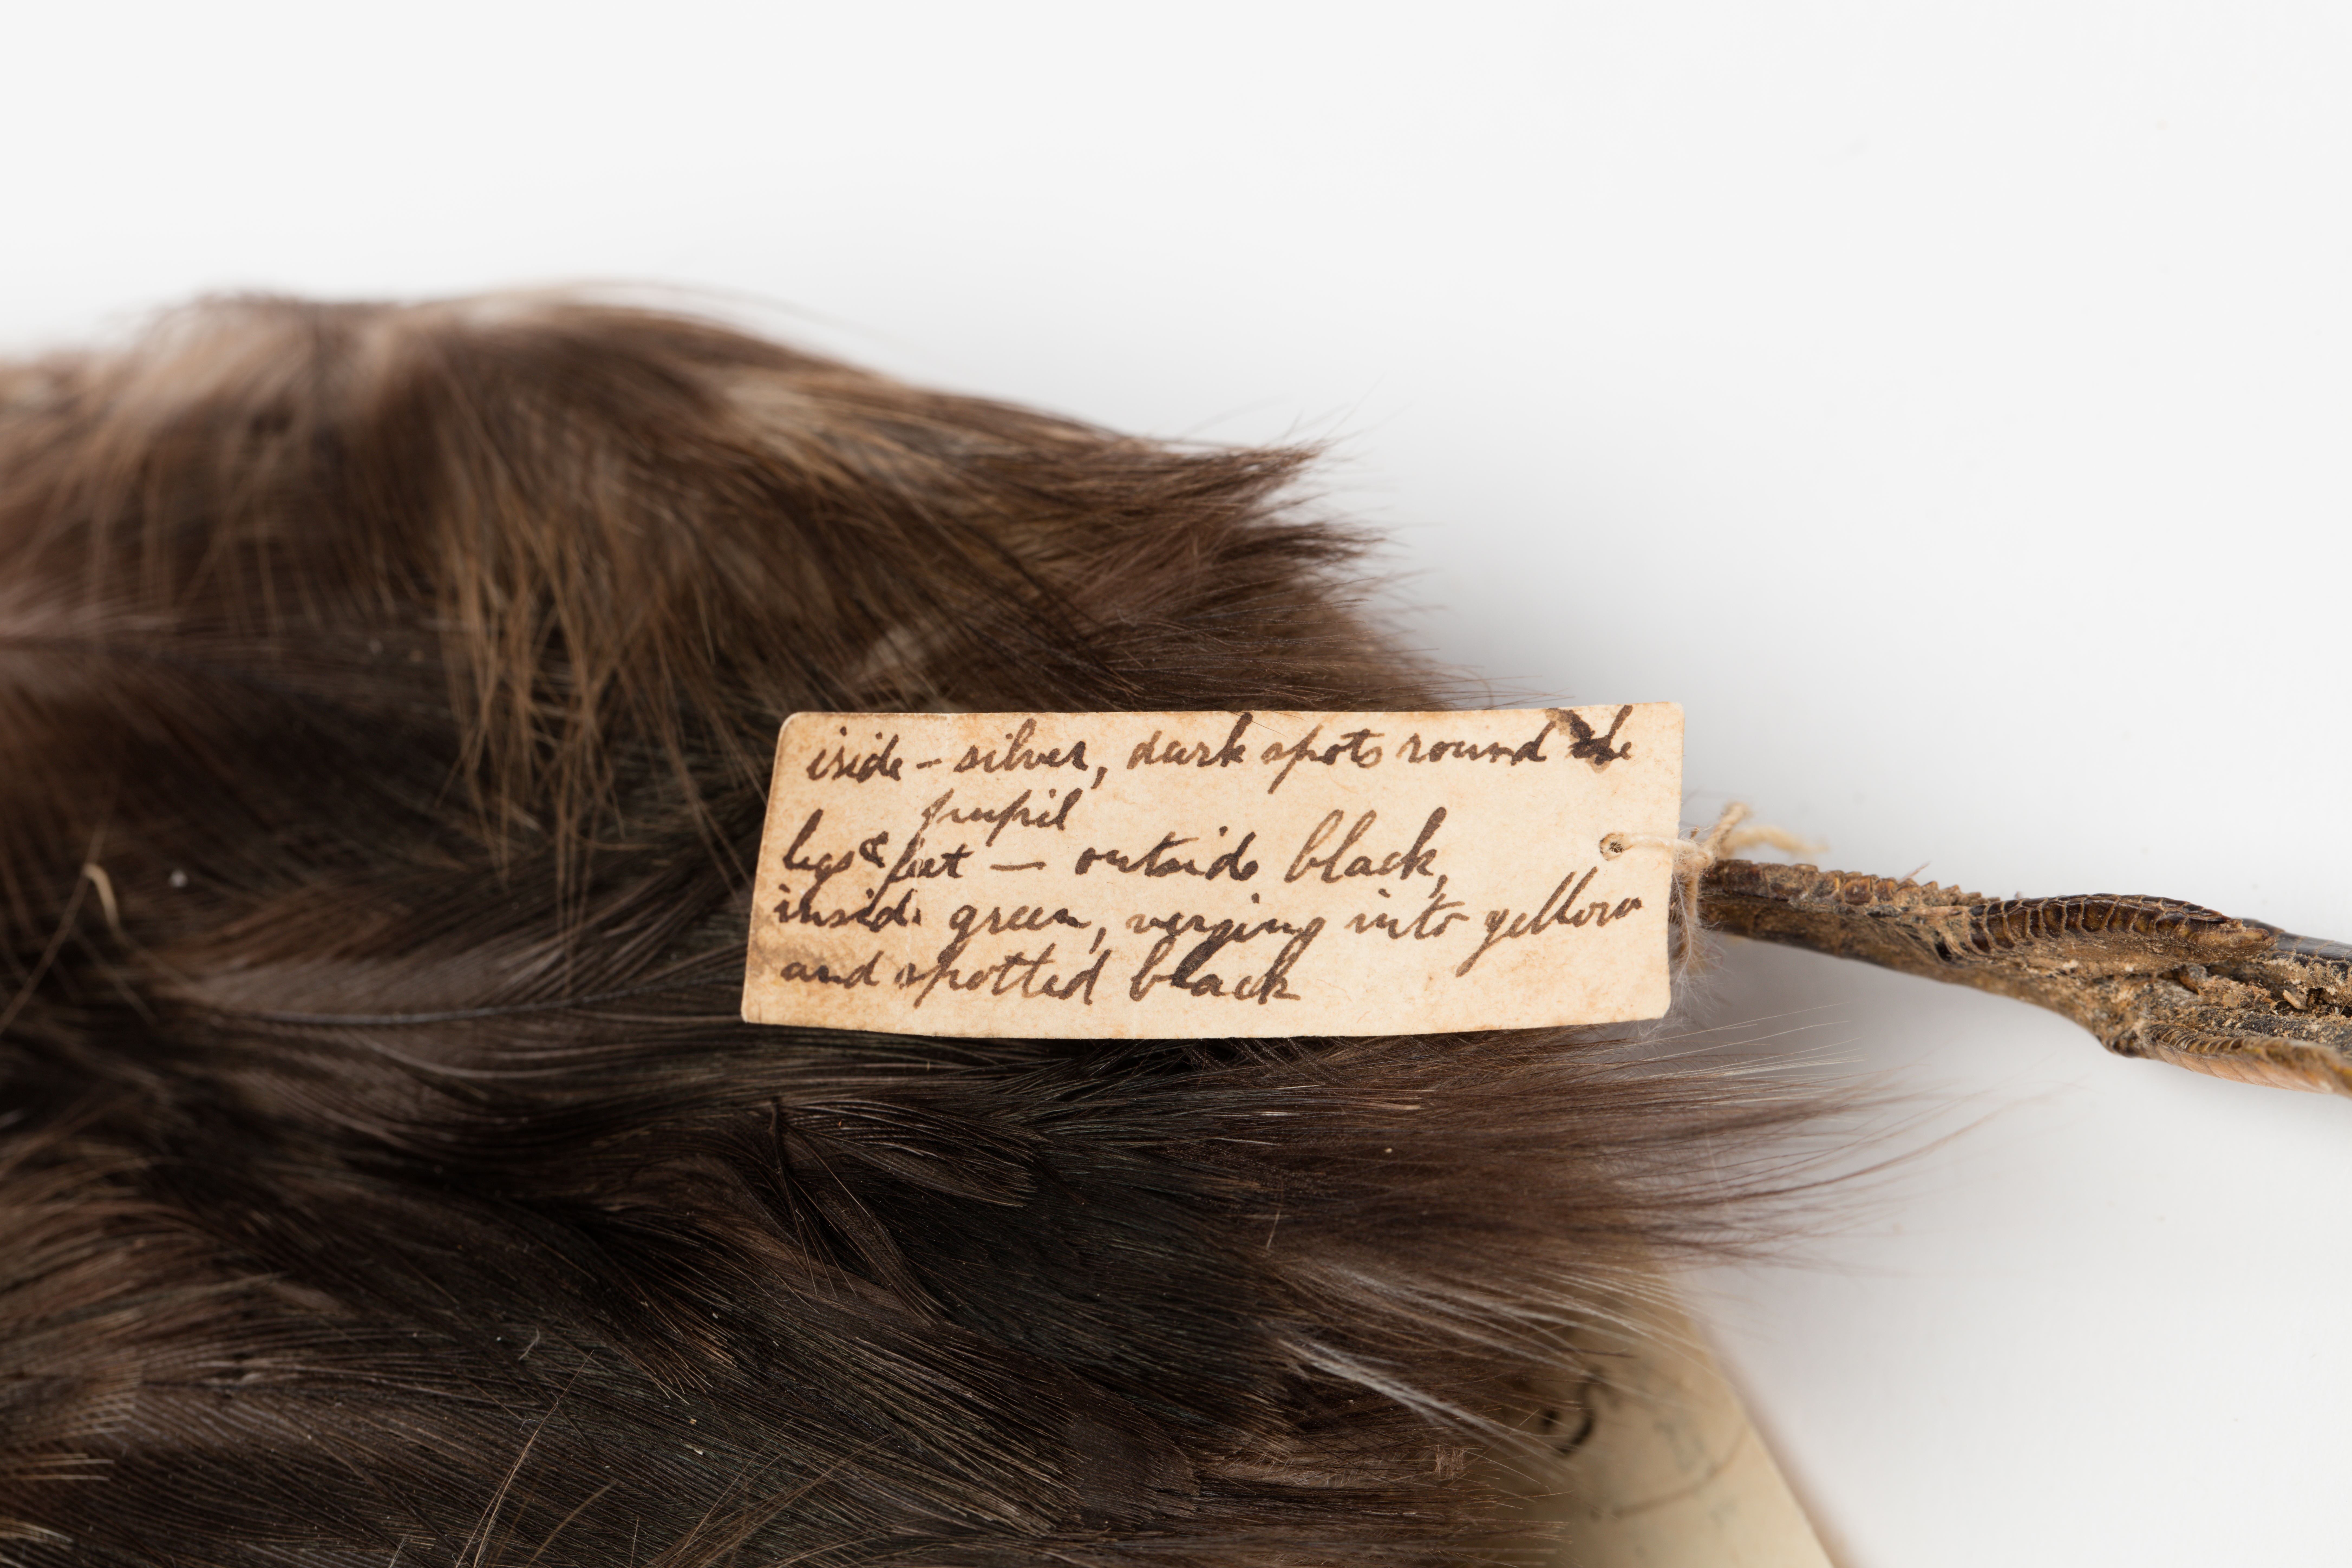 iride - silver, dark spots round the
pupil
legs & feet — outside black,
inside green, verging into yellow
and spotted black